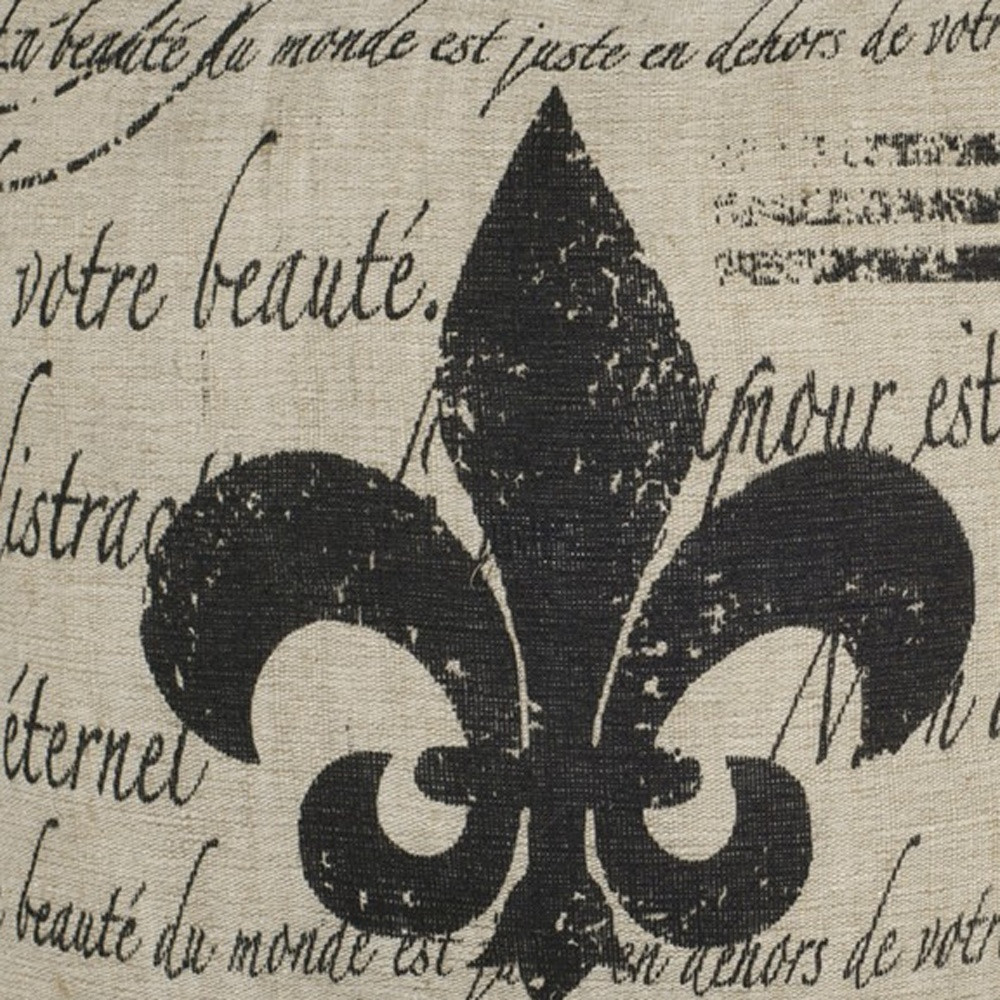 La beauté du monde est juste en dehors de votr
votre beauté.
amour est
distrac
éternel
Mon
beauté du monde est ju en dehors de votr